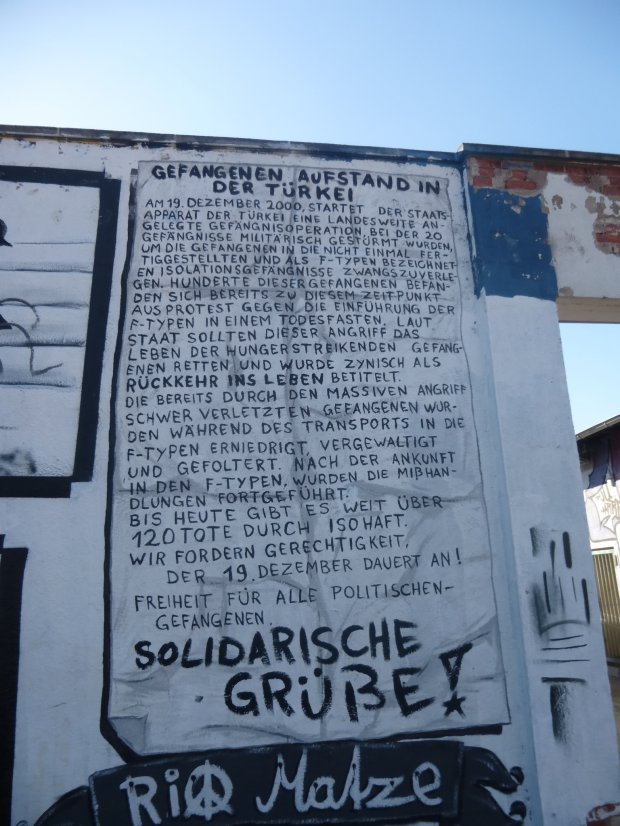 GEFANGENEN AUFSTAND IN
DER TÜRKEI
AM 19. DEZEMBER 2000, STARTET DER STAATS-
APPARAT DER TÜRKEI EINE LANDESWEITE AN-
GELEGTE GEFÄNGNISOPERATION, BEI DER 20
GEFÄNGNISSE MILITÄRISCH GESTÜRMT WURDEN,
UM DIE GEFANGENEN IN DIE NICHT EINMAL FER-
TIGGESTELLTEN UND ALS F-TYPEN BEZEICHNET
EN ISOLATIONSGEFÄNGNISSE ZWANGSZUVERLE-
GEN. HUNDERTE DIESER GEFANGENEN BEFAN-
DEN SICH BEREITS ZU DIESEM ZEITPUNKT
AUS PROTEST GEGEN DIE EINFÜHRUNG DER
F-TYPEN IN EINEM TODESFASTEN. LAUT
STAAT SOLLTEN DIESER ANGRIFF DAS
LEBEN DER HUNGERSTREIKENDEN GEFANG-
ENEN RETTEN UND WURDE ZYNISCH ALS
RÜCKKEHR INS LEBEN BETITELT.
DIE BEREITS DURCH DEN MASSIVEN ANGRIFF
SCHWER VERLETZTEN GEFANGENEN WUR-
DEN WÄHREND DES TRANSPORTS IN DIE
F-TYPEN ERNIEDRIGT, VERGEWALTIGT
UND GEFOLTERT. NACH DER ANKUNFT
IN DEN F-TYPEN, WURDEN DIE MIßHAN-
DLUNGEN FORTGEFÜHRT.
BIS HEUTE GIBT ES WEIT ÜBER
120 TOTE DURCH ISOHAFT.
WIR FORDERN GERECHTIGKEIT,
DER 19. DEZEMBER DAUERT AN!
FREIHEIT FÜR ALLE POLITISCHEN-
GEFANGENEN.
SOLIDARISCHE
GRÜßE!
RIO Matze